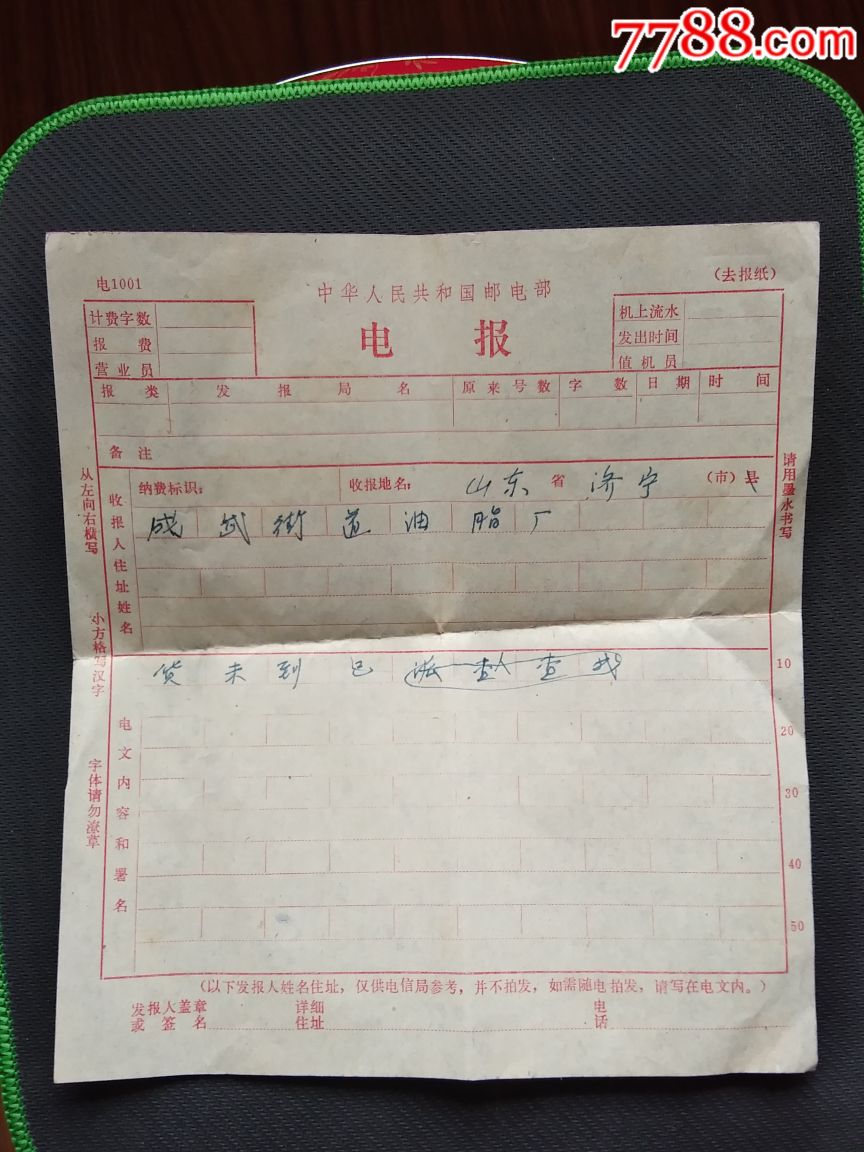 7788.com
电1001
(去报纸)
中华人民共和国邮电部
电 报
计费字数
报 费
营业员
机上流水
发出时间
值机员
报 类 发 报 局 名 原来号数 字 数 日 期 时 间
备 注
纳费标识: 收报地名: 山东 省 济宁 (市)县
收报人住址姓名
成武街道油脂厂
货未到已派人查找
电文内容和署名
10
20
30
40
50
从左向右横写 小方格写汉字 字体请勿潦草
请用墨水书写
(以下发报人姓名住址,仅供电信局参考,并不拍发,如需随电拍发,请写在电文内。)
发报人盖章 详细 电
或 签 名 住址 话